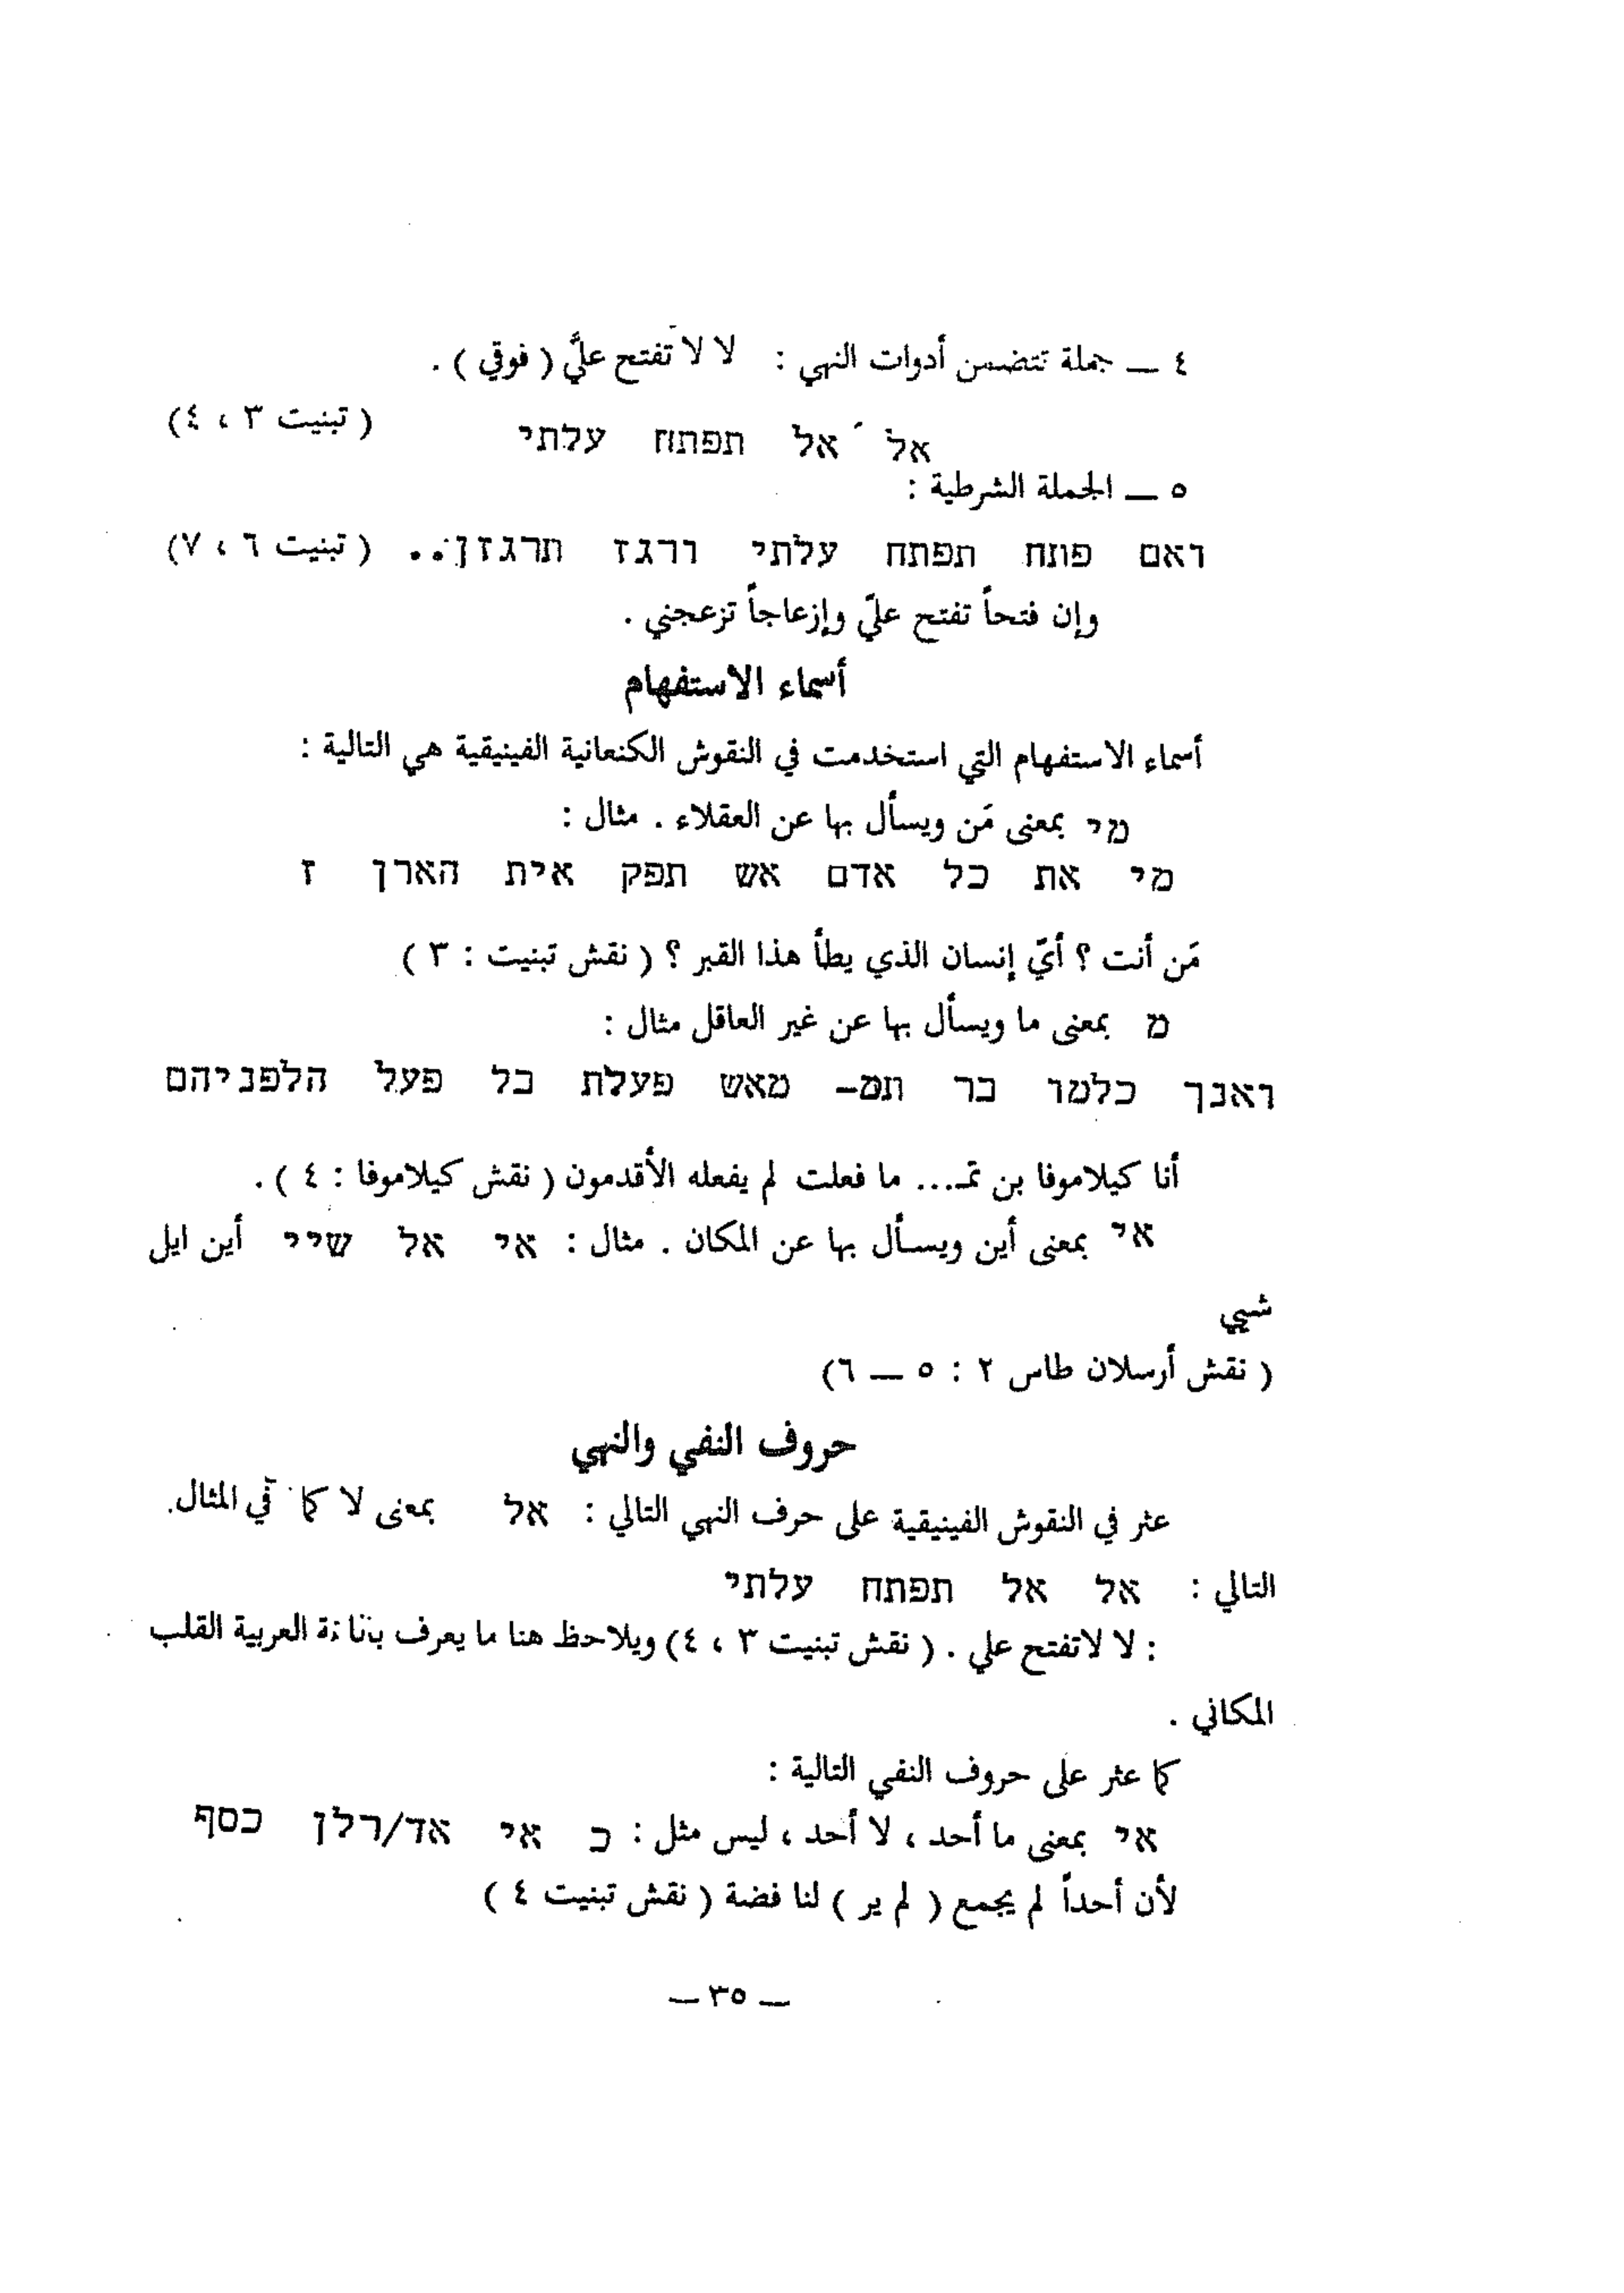 ٤ — جملة تتضمن أدوات النهي : لا لا تفتح عليَّ ( فوقي ) .
אל אל תפתח עלתי ( تبنيت ٣ ، ٤)
٥ — الجملة الشرطية :
ואם פתח תפתח עלתי ורגז תרגזן.. ( تبنيت ٦ ، ٧)
وإن فتحاً تفتح عليّ وإزعاجاً تزعجني .
أسماء الاستفهام
أسماء الاستفهام التي استخدمت في النقوش الكنعانية الفينيقية هي التالية :
מי بمعنى مَن ويسأل بها عن العقلاء . مثال :
מי את כל אדם אש תפק אית הארן ז
مَن أنت ؟ أيّ إنسان الذي يطأ هذا القبر ؟ ( نقش تبنيت : ٣ )
מ بمعنى ما ويسأل بها عن غير العاقل مثال :
ואנך כלמו בר תמ– מאש פעלת בל פעל הלפניהם
أنا كيلاموفا بن تمـ... ما فعلت لم يفعله الأقدمون ( نقش كيلاموفا : ٤ ) .
אי بمعنى أين ويسأل بها عن المكان . مثال : אי אל שיי أين ايل
شيي
( نقش أرسلان طاس ٢ : ٥ — ٦)
حروف النفي والنهي
عثر في النقوش الفينيقية على حرف النهي التالي : אל بمعنى لا كما في المثال
التالي : אל אל תפתח עלתי
: لا لاتفتح علي . ( نقش تبنيت ٣ ، ٤) ويلاحظ هنا ما يعرف العربية القلب
المكاني .
كما عثر على حروف النفي التالية :
אי بمعنى ما أحد ، لا أحد ، ليس مثل : כ אי אד/רלן כסף
لأن أحداً لم يجمع ( لم ير ) لنا فضة ( نقش تبنيت ٤ )
— ٣٥ —